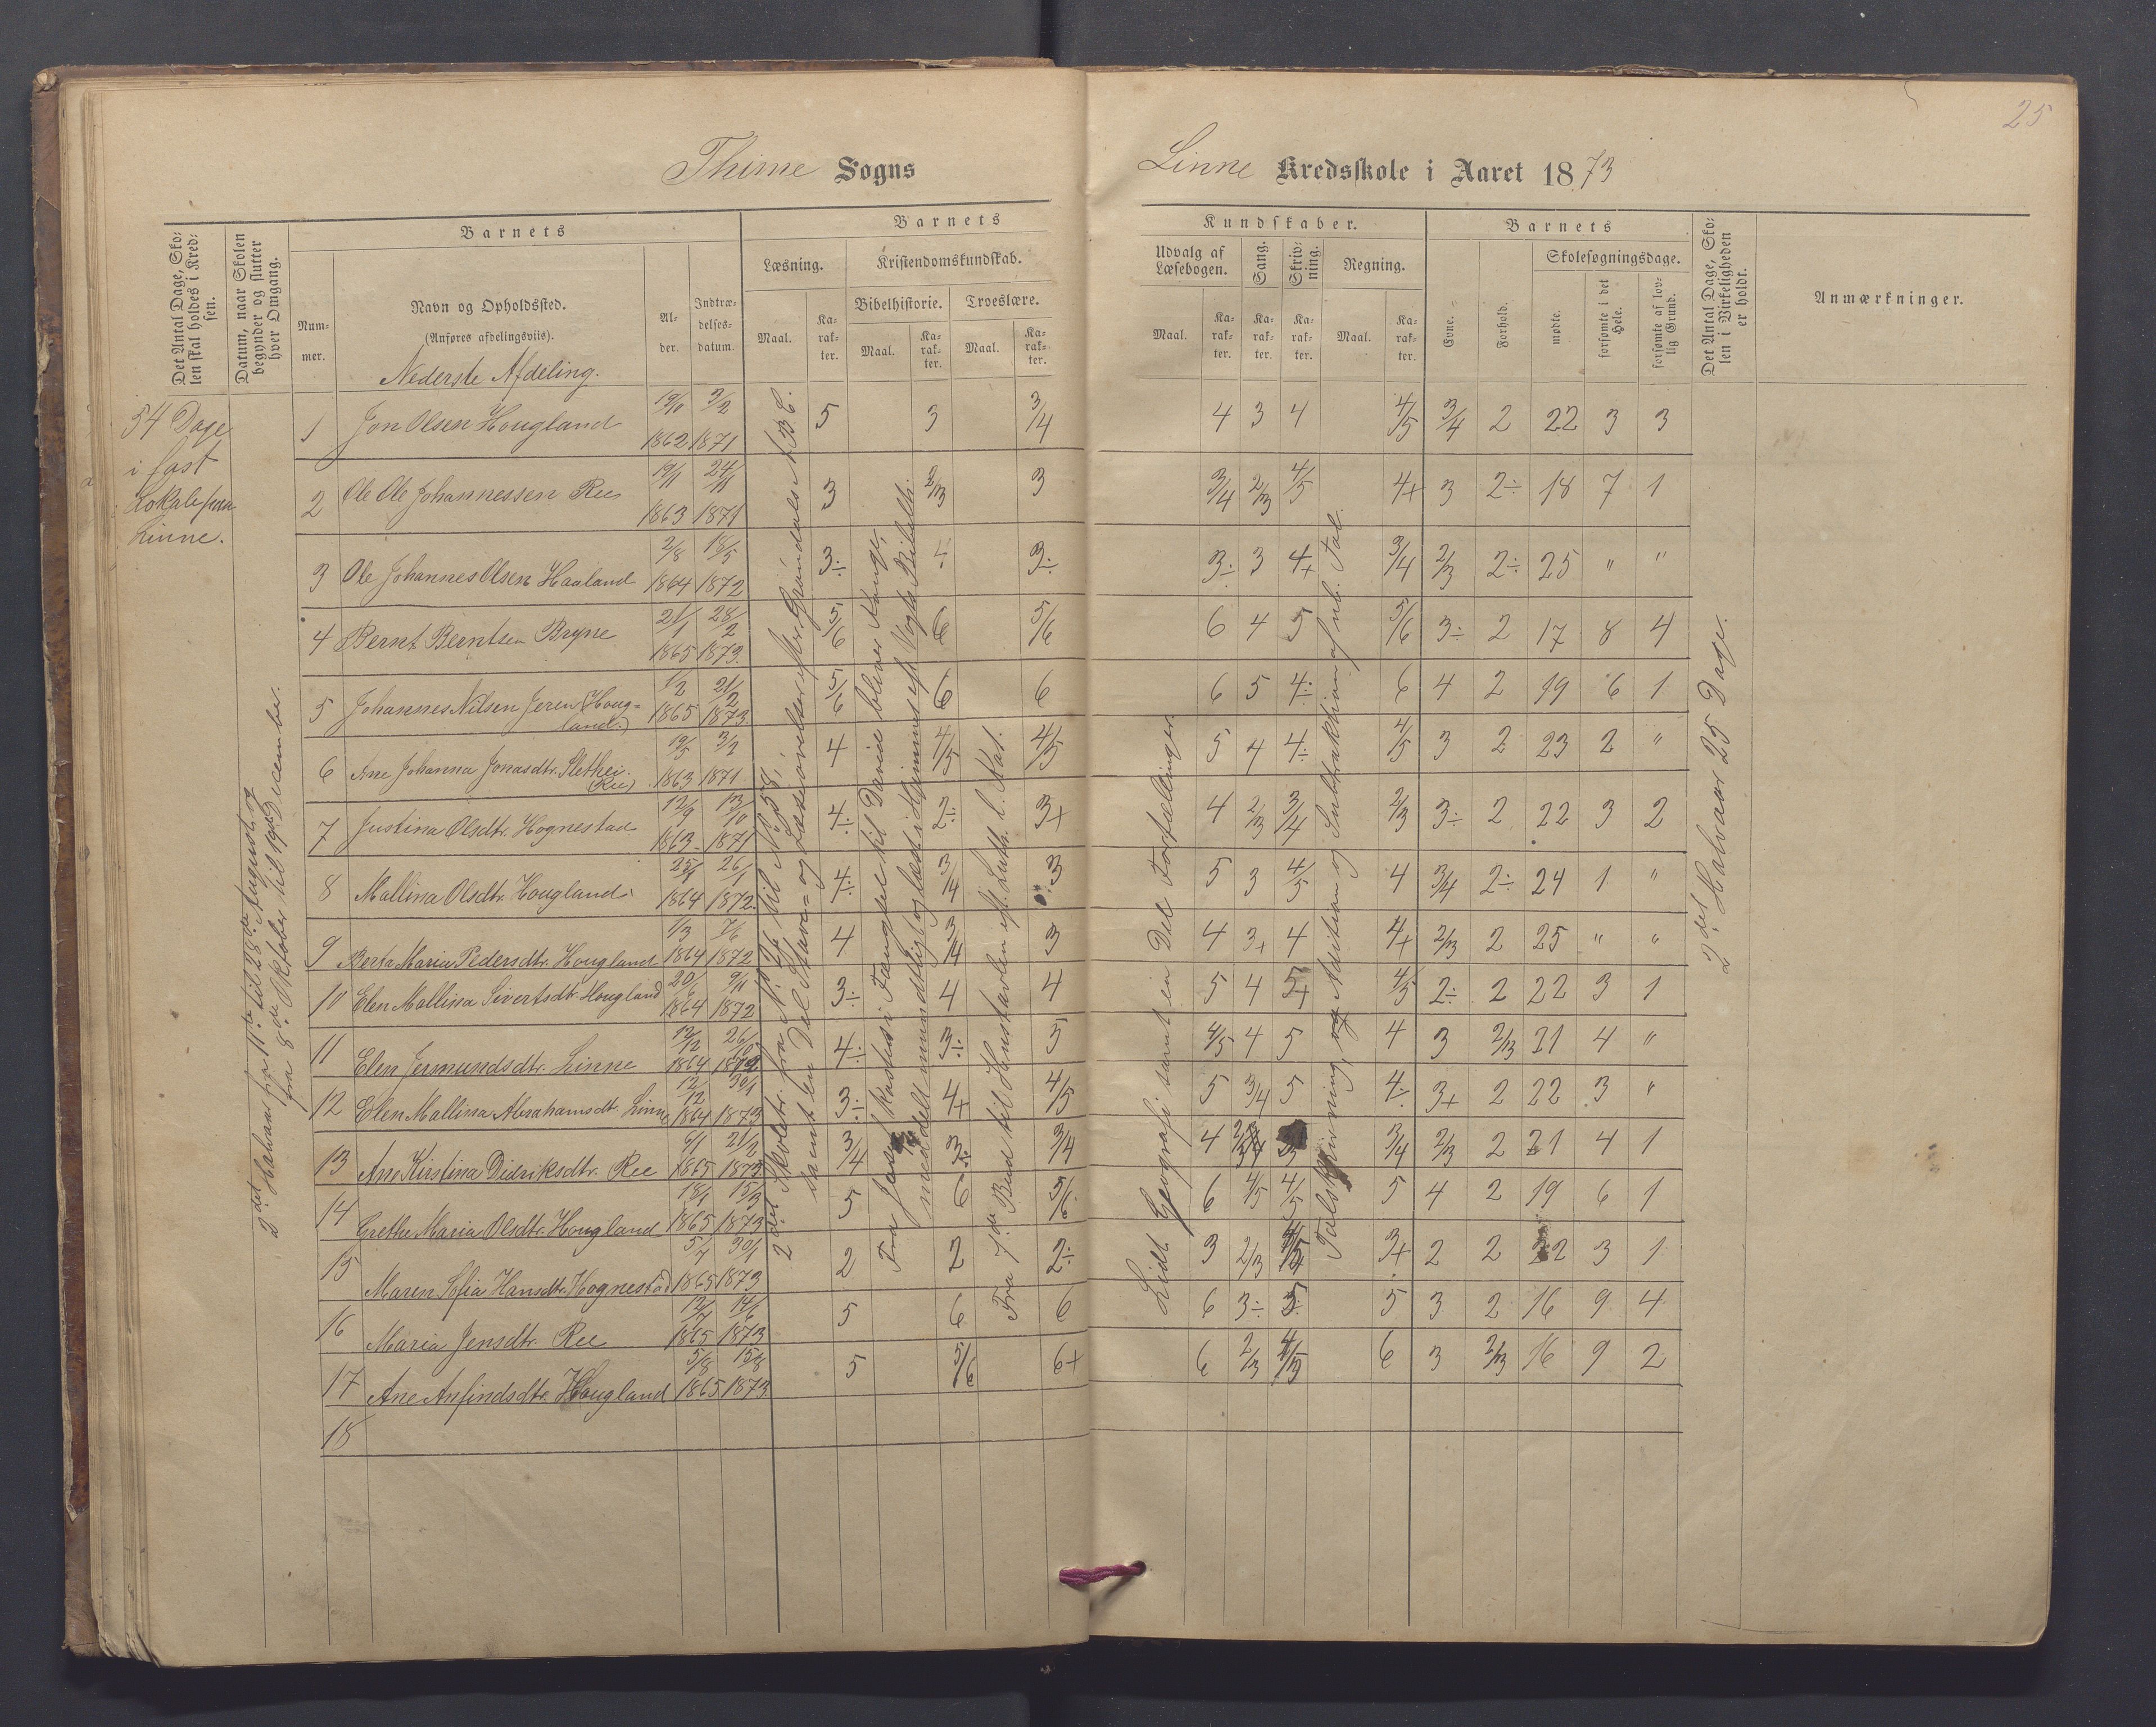 25
Thime Sogns
Linne Kredsskole i Aaret 1873
Det Antal Dage, Skolen skal holdes i Kredsen.
Datum, naar Skolen begynder og slutter hver Omgang.
Barnets
Nummer.
Navn og Opholdssted.
(Anføres afdelingsviis).
Nederste Afdeling.
Alder.
Indtrædelsesdatum.
Barnets
Læsning.
Kristendomskundskab.
Bibelhistorie.
Troeslære.
Maal.
Karakter.
Maal.
Karakter.
Maal.
Karakter.
Kundskaber.
Udvalg af Læsebogen.
Sang.
Skrivning.
Regning.
Maal.
Karakter.
Karakter.
Karakter.
Maal.
Karakter.
Barnets
Evne.
Forhold.
Skolesøgningsdage.
mødte.
forsømte i det Hele.
forsømte af lovlig Grund.
Det Antal Dage, Skolen i Virkeligheden er holdt.
Anmærkninger.
54 Dage
i fast
Lokale paa
Linne.
2det Halvaar fra 11te til 28de August og
fra 8de Oktober til 19de December.
1 Jon Olsen Hougland 1862 3/2 1871 5 3 3/4 4 3 4 4/5 3/4 2 22 3 3
2 Ole Ole Johannessen Ree 19/11 1863 24/11 1871 3 2/3 3 3/4 2/3 4/5 4+ 3 2÷ 18 7 1
3 Ole Johannes Olsen Haaland 2/8 1864 18/5 1872 3÷ 3÷ 3÷ 3 4+ 3/4 2/3 2÷ 25 " "
4 Bernt Berntsen Bryne 21/1 1865 28/2 1873. 5/6 6 5/6 6 4 5 5/6 3÷ 2 17 8 4
5 Johannes Nilsen Jeren (Hougland.) 1/2 1865 21/2 1873. 5/6 6 6 6 5 4÷ 6 4 2 19 6 1
6 Ane Johanna Jonasdtr. Slethei. (Ree) 19/5 1863 3/2 1871 4 4/5 4/5 5 4 4÷ 4/5 3 2 23 2 "
7 Justina Olsdtr. Hognestad 12/9 1863 13/10 1871 4÷ 2÷ 3+ 4 2/3 3/4 2/3 3÷ 2 22 3 2
8 Mallina Olsdtr. Hougland 25/1 1864 26/1 1872. 4÷ 3/4 3 5 3 4/5 4 3/4 2÷ 24 1 "
9 Berta Maria Pedersdtr. Hougland 1/3 1864 7/6 1872 4 3/4 3 4 3+ 4 4+ 2/3 2 25 " "
10 Elen Mallina Sivertsdtr. Hougland 20/6 1864 9/11 1872 3÷ 4 4 5 4 5+ 4/5 2÷ 2 22 3 1
11 Elen Jermundsdtr. Linne 13/12 1864 26/10 4÷ 3÷ 3 4/5 4 5 4 3 2/3 21 4 "
12 Elen Mallina Abrahamsdt. Linne 12/12 1864 30/1 1873 3÷ 4+ 4/5 5 3/4 5 4÷ 3+ 2 22 3 "
13 Ane Kirstina Didriksdtr. Ree 6/1 1865 21/2 1873. 3/4 3÷ 3/4 4 3/4 2/3 2 21 4 1
14 Grethe Maria Olsdtr. Hougland 18/1 1865 15/3 1873 5 6 5/6 6 4/5 4/5 5 4 2 19 6 1
15 Maren Sofia Hansdtr. Hognestad 5/7 1865 30/1 1873 2 2 2÷ 3 2/3 3+ 2 2 22 3 1
16 Maria Jensdtr. Ree 12/7 1865 14/6 1873 5 6 6 6 3÷ 5 3 2 16 9 4
17 Ane Anfindsdtr. Hougland 5/8 1865 15/8 1873. 5 5/6 6+ 6 2/3 6 3 2/3 16 9 2
18
2det Skoletr. fra No 26 til No 58,
samt en Del Stave- og Læseøvelser efter Grøndals A.B.C.
Fra Josef kastes i Fængsel til David bliver Konge,
meddelt mundtligt og læst i Hjemmet eft. Vogts Bibelh.
Fra 7de Bud til Hustavlen eft. Luth. l. Kat.
Lidt Geografi samt en Del Fortællinger
Talskrivning, og Addition og Subtraktion af ub. Tal.
2det Halvaar 25 Dage.